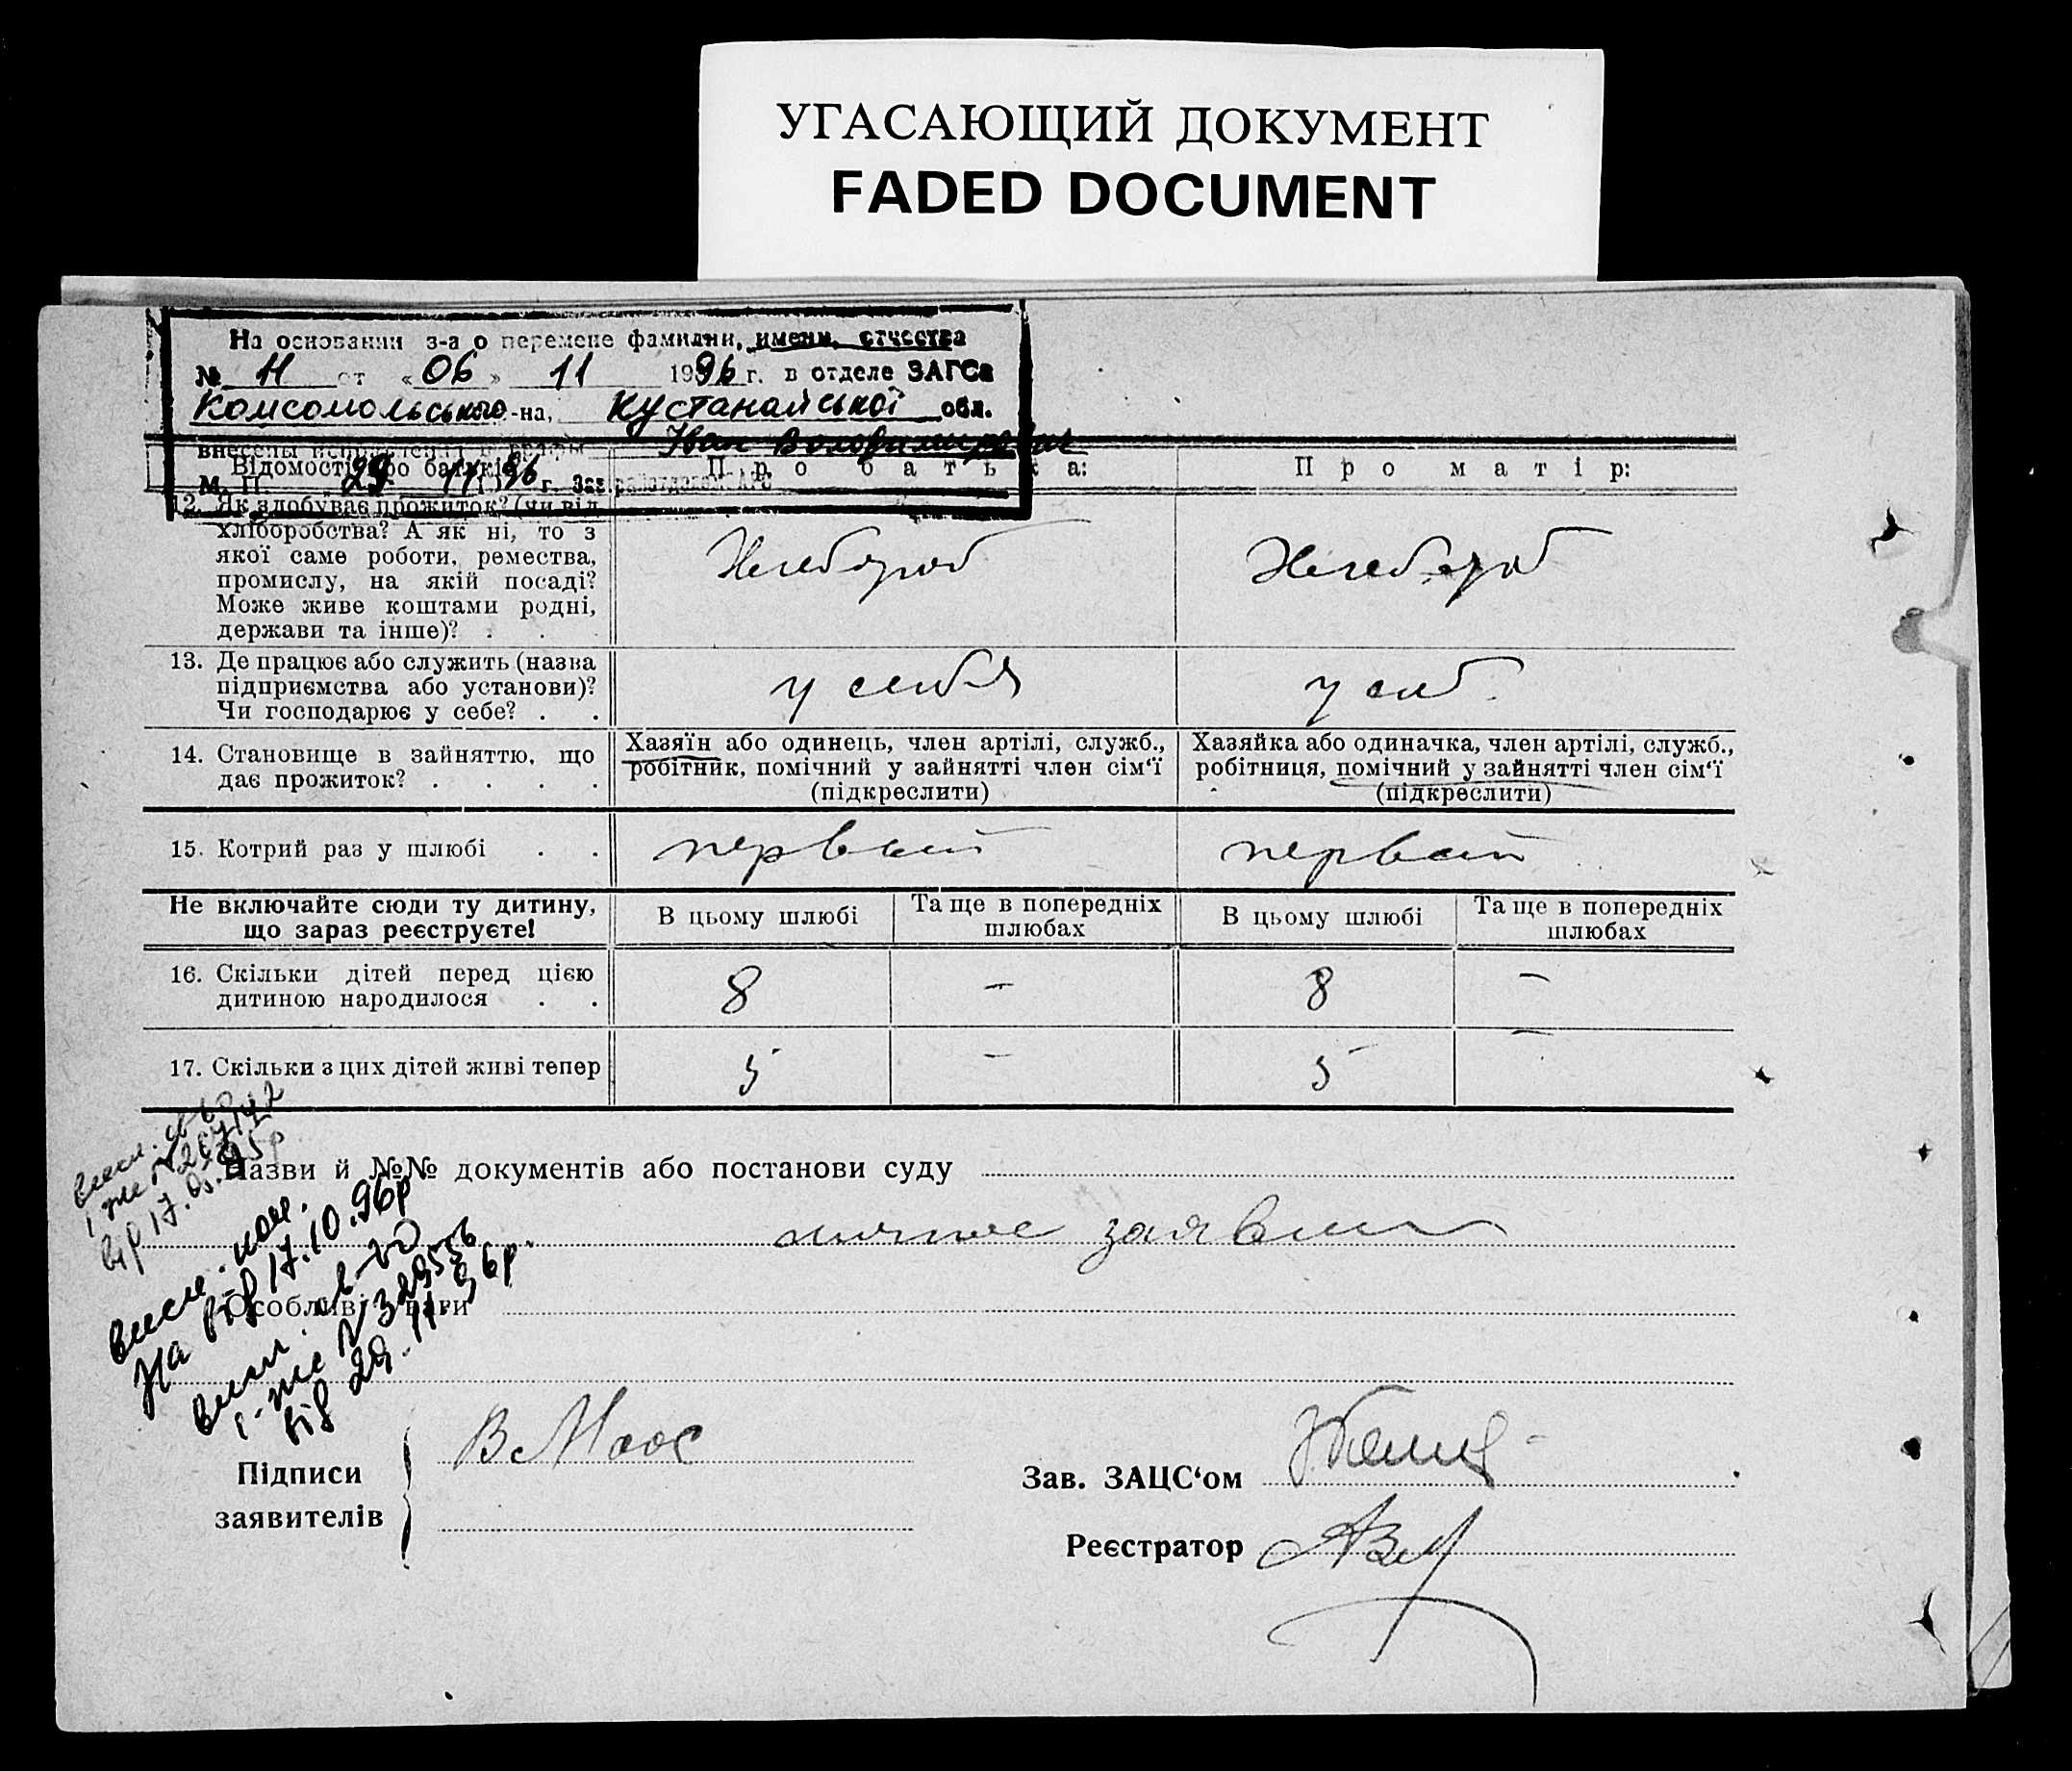 УГАСАЮЩИЙ ДОКУМЕНТ
FADED DOCUMENT
На основании з-а о перемене фамилии, имени, отчества
№ 11 от «06» 11 1996 г. в отделе ЗАГСа
Комсомольського -на, Кустанайської обл.
внесены исправления в графы Іван Володимирович
М. П. 29 11 96 г. Зав.
Відомості про батьків Про батька: Про матір:
12. Як здобуває прожиток? (чи від
хліборобства? А як ні, то з
якої саме роботи, ремества,
промислу, на якій посаді?
Може живе коштами родні,
держави та інше)? . .
Хлебороб Хлебороб
13. Де працює або служить (назва
підприємства або установи)?
Чи господарює у себе? . .
у себя у себ.
14. Становище в зайняттю, що
дає прожиток? . . . .
Хазяїн або одинець, член артілі, служб.,
робітник, помічний у зайнятті член сім‘ї
(підкреслити)
Хазяйка або одиначка, член артілі, служб.,
робітниця, помічний у зайнятті член сім‘ї
(підкреслити)
15. Котрий раз у шлюбі . . первый первый
Не включайте сюди ту дитину,
що зараз реєструєте!
В цьому шлюбі
Та ще в попередніх
шлюбах
В цьому шлюбі
Та ще в попередніх
шлюбах
16. Скільки дітей перед цією
дитиною народилося . .
8 – 8 –
17. Скільки з цих дітей живі тепер 5 – 5 –
Назви й №№ документів або постанови суду
личное заявлен
від 17.10.96р
від 29.11.96р.
Підписи
заявителів
В Маос
Зав. ЗАЦС‘ом
Реєстратор